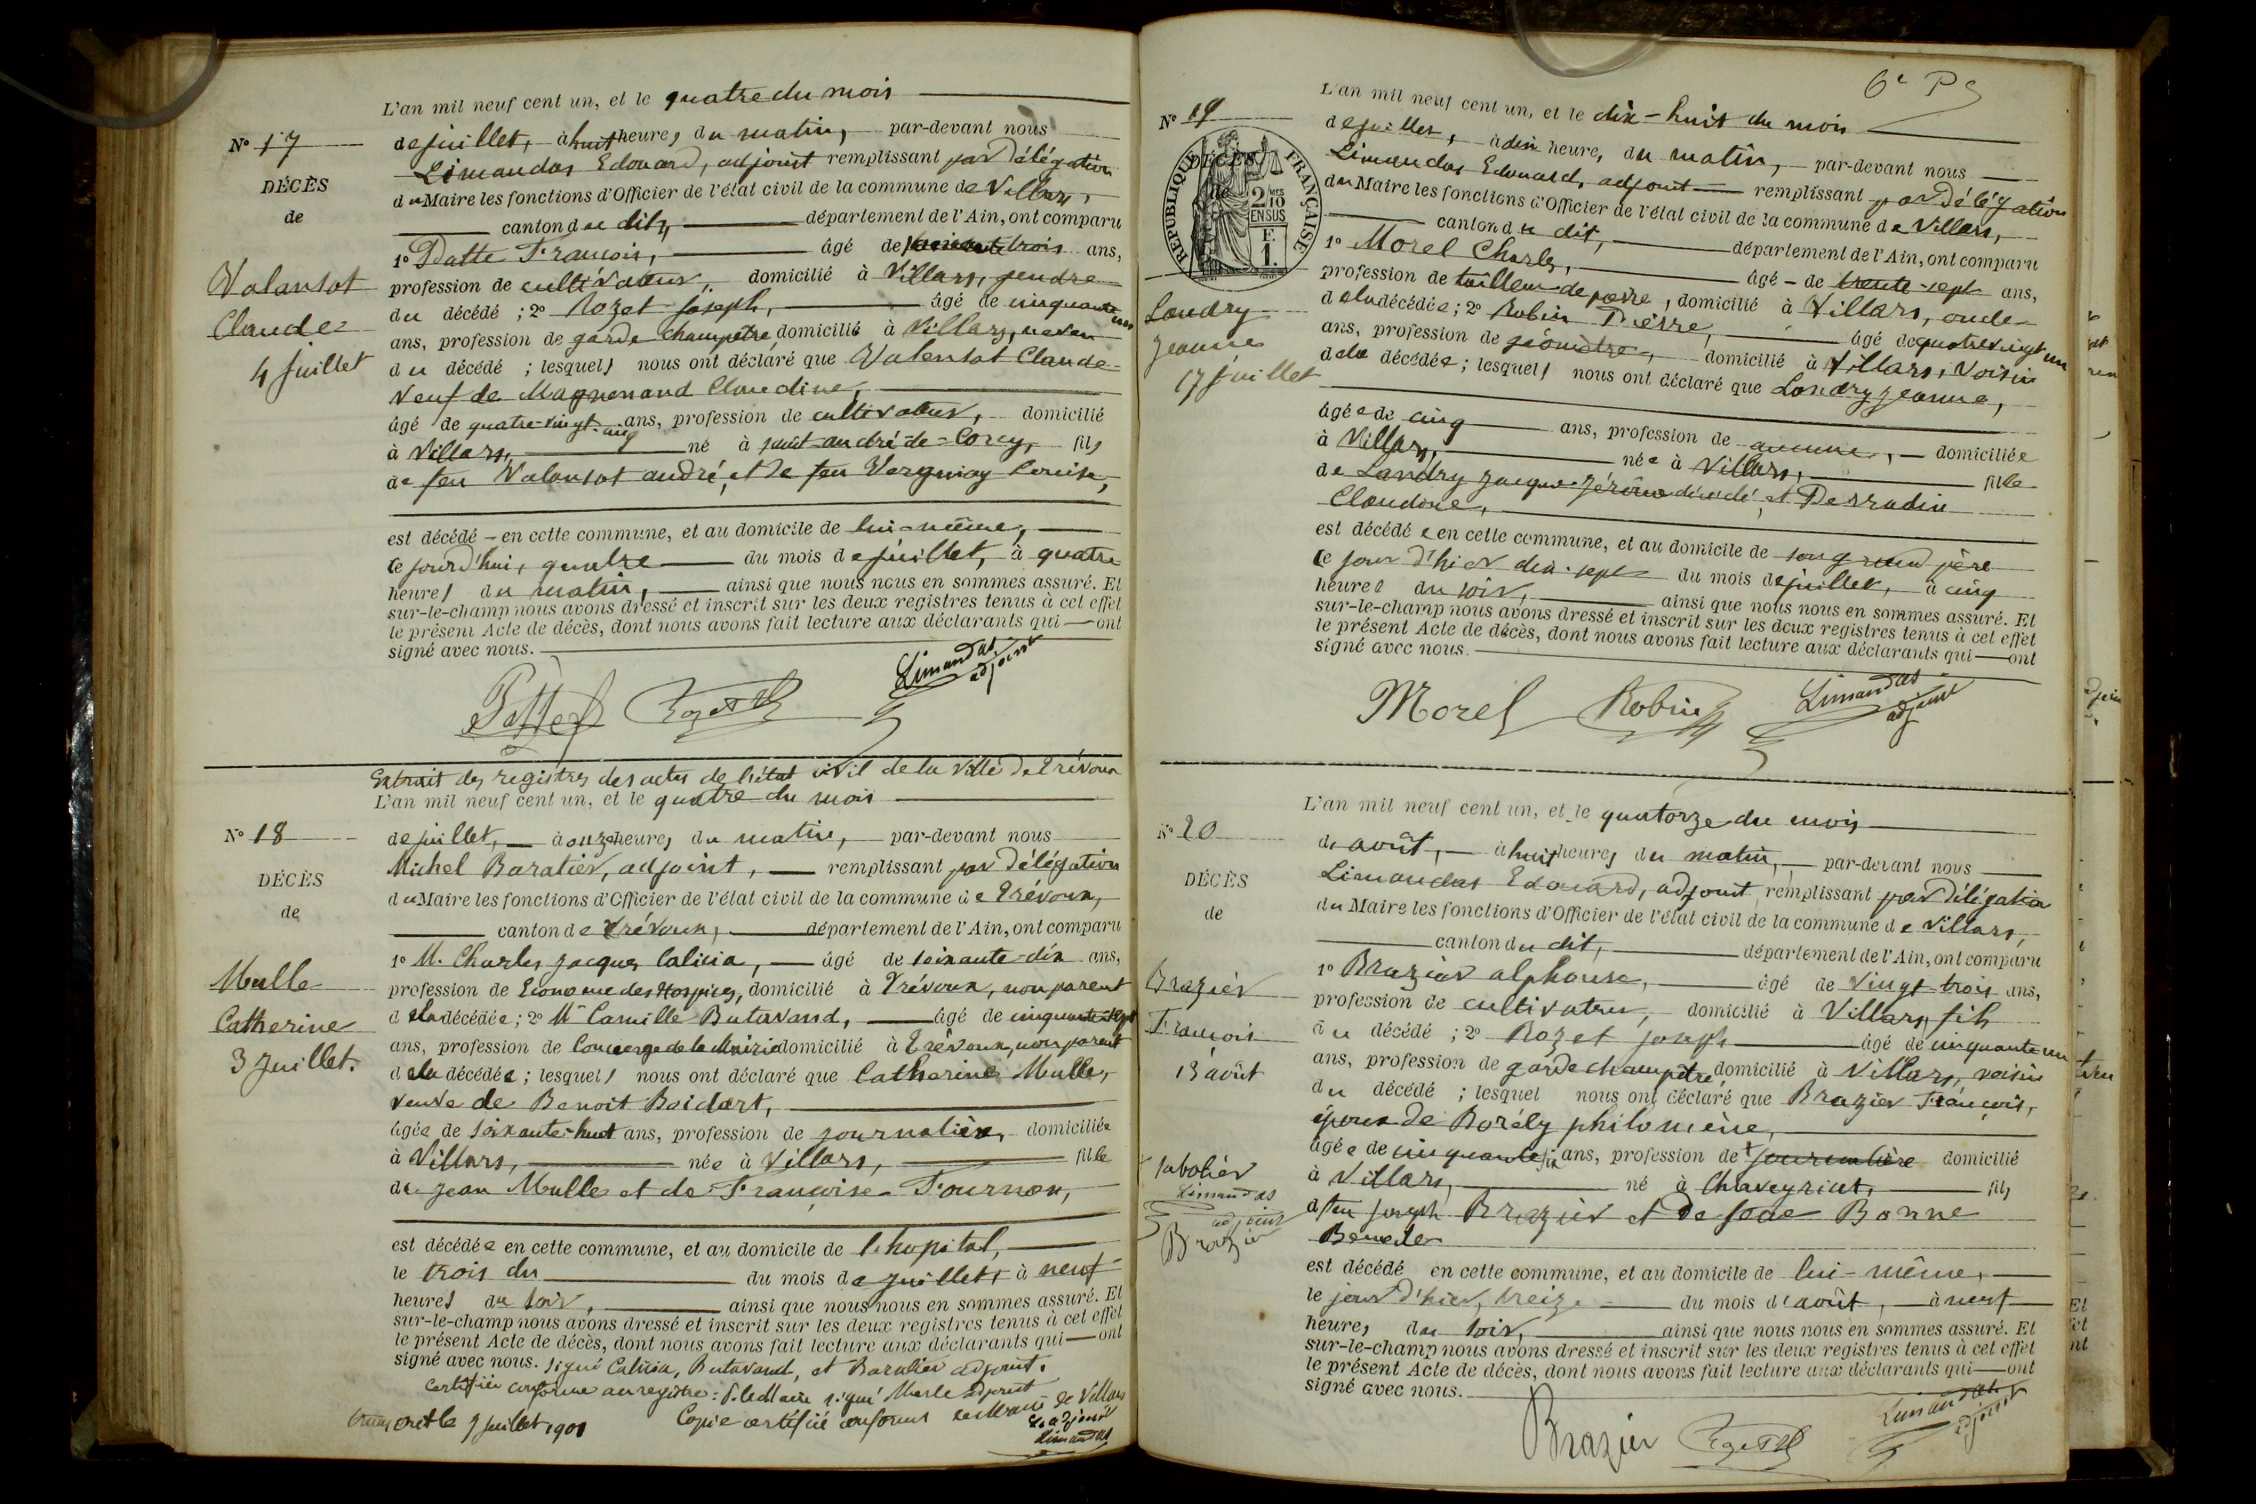 L'an mil neuf cent un, et le quatre du mois
N° 17
de juillet, à huit heures du matin, par-devant nous
Limandas Edouard, adjoint remplissant par délégation
DÉCÈS
du Maire les fonctions d'Officier de l'état civil de la commune de Villars,
de
canton du dit, département de l'Ain, ont comparu
1° François, âgé de trois ans,
Valansot
profession de cultivateur, domicilié à Villars, gendre
Claude
du décédé ; 2° Rozet Joseph, âgé de cinquante un
ans, profession de garde champêtre domicilié à Villars, neveu
4 juillet
du décédé ; lesquels nous ont déclaré que Valansot Claude
veuf de Claudine,
âgé de quatre-vingt-cinq ans, profession de cultivateur, domicilié
à Villars, né à Saint-andré-de-Corcy, fils
de feu Valansot andré, et de feu Louise,
est décédé en cette commune, et au domicile de lui-même,
le jourd'hui, quatre du mois de juillet, à quatre
heures du matin, ainsi que nous nous en sommes assuré. Et
sur-le-champ nous avons dressé et inscrit sur les deux registres tenus à cet effet
le présent Acte de décès, dont nous avons fait lecture aux déclarants qui ont
signé avec nous.
Rozet
Limandas
adjoint
Extrait des registres des actes de l'état civil de la Ville de Trévoux
L'an mil neuf cent un, et le quatre du mois
N° 18
de juillet, à onze heures du matin, par-devant nous
Michel Baratier, adjoint, remplissant par délégation
DÉCÈS
du Maire les fonctions d'Officier de l'état civil de la commune de Trévoux,
de
canton de Trévoux, département de l'Ain, ont comparu
1° M. Charles Jacques Calicia, âgé de soixante-dix ans,
Mulle
profession de Econome des Hospices, domicilié à Trévoux, non parent
Catherine
de la décédée ; 2° Mr Camille Butavand, âgé de cinquante-sept
ans, profession de Concierge de la Mairie domicilié à Trévoux, non parent
3 Juillet.
de la décédée ; lesquels nous ont déclaré que Catherine Mulle,
veuve de Benoit Boidart,
âgée de soixante-huit ans, profession de journalière, domiciliée
à Villars, née à Villars, fille
de Jean Mulle et de Françoise Fournon,
est décédée en cette commune, et au domicile de l'hopital,
le trois du du mois de juillet, à neuf
heures du soir, ainsi que nous nous en sommes assuré. Et
sur-le-champ nous avons dressé et inscrit sur les deux registres tenus à cet effet
le présent Acte de décès, dont nous avons fait lecture aux déclarants qui ont
signé avec nous. signé Calicia, Butavand, et Baratier adjoint.
Certifié conforme au registre : P. le Maire signé Merle adjoint
le 9 juillet 1901 Copie certifié conforme le Maire de Villars
L'adjoint
Limandas
6e P
L'an mil neuf cent un, et le dix-huit du mois
N° 19
de juillet, à dix heures du matin, par-devant nous
DÉCÈS
de
RÉPUBLIQUE FRANÇAISE
2/10
EN SUS
F.
1.
Limandas Edouard, adjoint remplissant par délégation
du Maire les fonctions d'Officier de l'état civil de la commune de Villars,
canton du dit, département de l'Ain, ont comparu
1° Morel Charles, âgé de trente-sept ans,
Landry
profession de tailleur de pierre, domicilié à Villars, oncle
Jeanne
de la décédée ; 2° Robin Pierre, âgé de quatrevingt un
17 juillet
ans, profession de géomètre, domicilié à Villars, voisin
de la décédée ; lesquels nous ont déclaré que Landry Jeanne,
âgée de cinq ans, profession de aucune, domiciliée
à Villars, née à Villars, fille
de Landry Jacques Jérôme décédé, et Perradin
Claudine,
est décédée en cette commune, et au domicile de son grand père
le jour d'hier dix-sept du mois de juillet, à cinq
heures du soir, ainsi que nous nous en sommes assuré. Et
sur-le-champ nous avons dressé et inscrit sur les deux registres tenus à cet effet
le présent Acte de décès, dont nous avons fait lecture aux déclarants qui ont
signé avec nous.
Morel Robin Limandas
adjoint
L'an mil neuf cent un, et le quatorze du mois
N° 20
de août, à huit heures du matin, par-devant nous
Limandas Edouard, adjoint remplissant par délégation
DÉCÈS
du Maire les fonctions d'Officier de l'état civil de la commune de Villars,
de
canton du dit, département de l'Ain, ont comparu
1° Brazier alphonse, âgé de vingt trois ans,
Brazier
profession de cultivateur, domicilié à Villars, fils
François
du décédé ; 2° Rozet Joseph âgé de cinquante un
13 août
ans, profession de garde champêtre, domicilié à Villars, voisin
du décédé ; lesquel nous ont déclaré que Brazier François,
époux de Borély philomène,
âgée de cinquante six ans, profession de journalière domicilié
sabotier
Limandas
adjoint
Brazier
à Villars, né à Chaveyriat, fils
de feu Joseph Brazier et de Bonne
est décédé en cette commune, et au domicile de lui-même,
le jour d'hier, treize du mois d'août, à neuf
heures du soir, ainsi que nous nous en sommes assuré. Et
sur-le-champ nous avons dressé et inscrit sur les deux registres tenus à cet effet
le présent Acte de décès, dont nous avons fait lecture aux déclarants qui ont
signé avec nous.
Brazier Rozet Limandas
adjoint